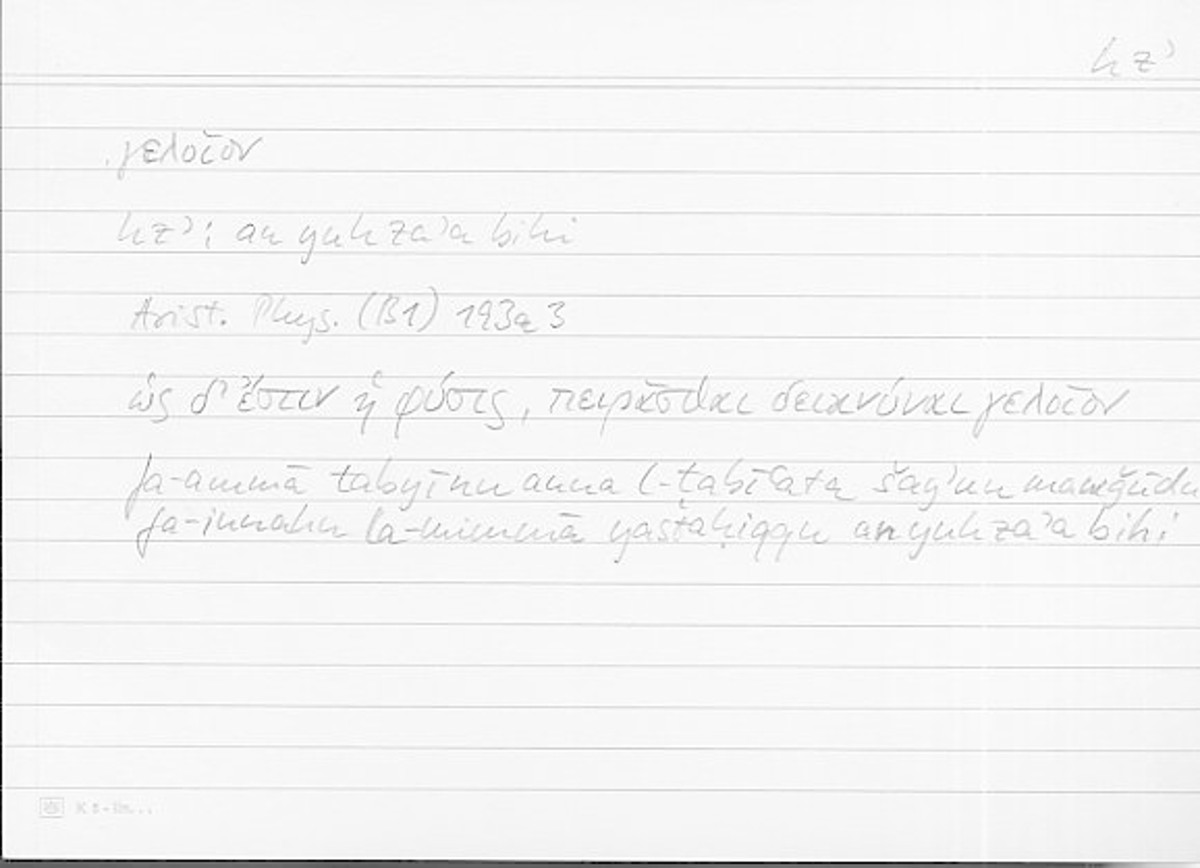 hzʾ
γελοῖον
hzʾ: an yuhzaʾa bihi
Arist. Phys. (B1) 193a3
ὡς δ' ἔστιν ἡ φύσις, πειρᾶσθαι δεικνύναι γελοῖον
fa-ammā tabyīnu anna l-ṭabīʿata šayʾun mawǧūdu
fa-innahu la-mimmā yastaḥiqqu an yuhzaʾa bihi